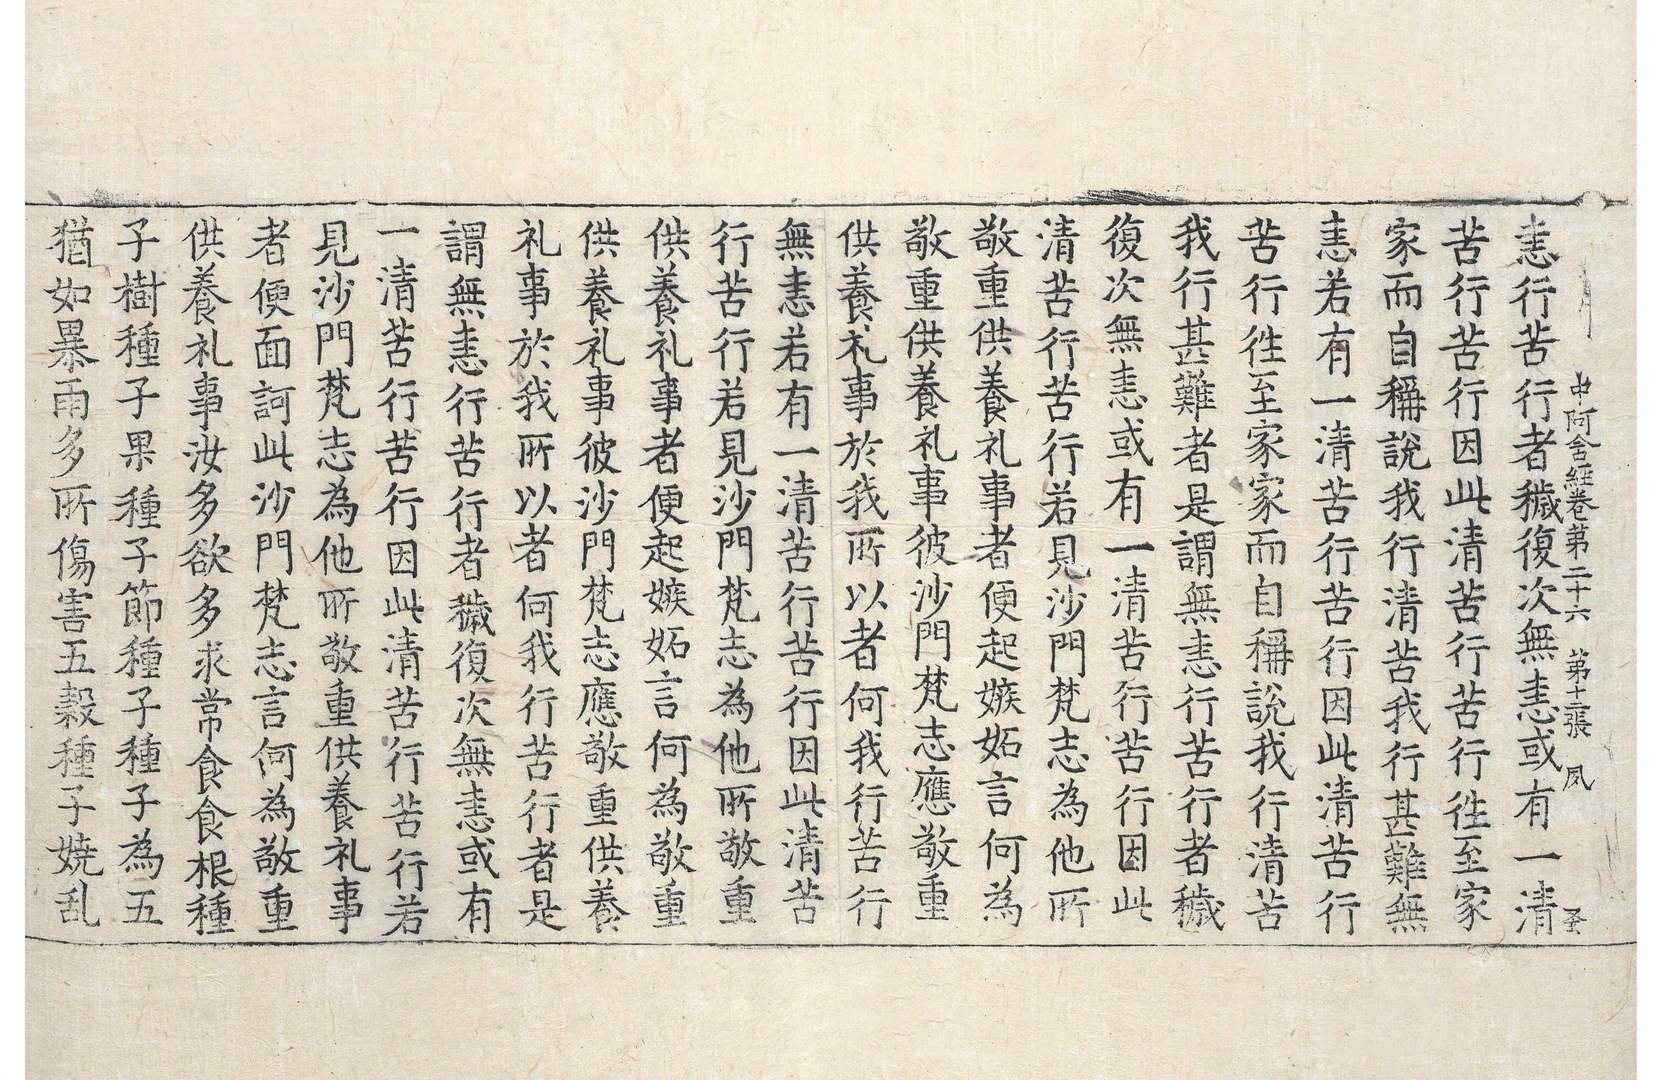 中阿含經卷第二十六 第十二張 夙
恚行苦行者穢復次無恚或有一清
苦行苦行因此清苦行苦行徃至家
家而自稱說我行清苦我行甚難無
恚若有一清苦行苦行因此清苦行
苦行徃至家家而自稱說我行清苦
我行甚難者是謂無恚行苦行者穢
復次無恚或有一清苦行苦行因此
清苦行苦行若見沙門梵志為他所
敬重供養礼事者便起嫉妬言何為
敬重供養礼事彼沙門梵志應敬重
供養礼事於我所以者何我行苦行
無恚若有一清苦行苦行因此清苦
行苦行若見沙門梵志為他所敬重
供養礼事者便起嫉妬言何為敬重
供養礼事彼沙門梵志應敬重供養
礼事於我所以者何我行苦行者是
謂無恚行苦行者穢復次無恚或有
一清苦行苦行因此清苦行苦行若
見沙門梵志為他所敬重供養礼事
者便面訶此沙門梵志言何為敬重
供養礼事汝多欲多求常食食根種
子樹種子果種子節種子種子為五
猶如暴雨多所傷害五穀種子嬈乱